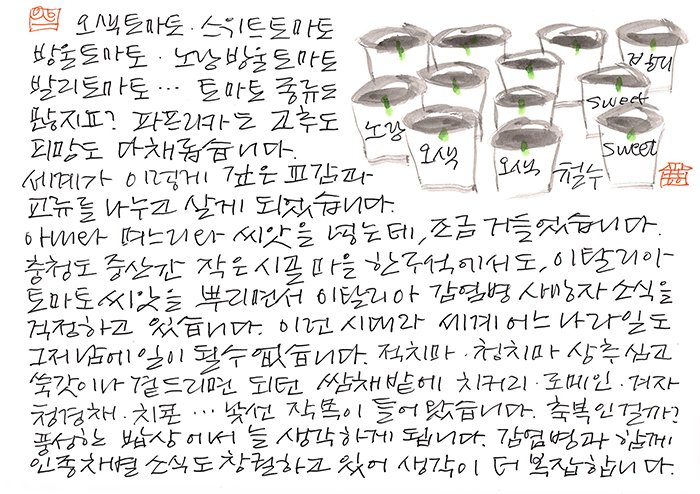 오색토마토·스위트토마토
방울토마토·노랑방울토마토
발리토마토… 토마토 종류도
많지요? 파프리카는 고추도
피망도 다채롭습니다.
세계가 이렇게 깊은 교감과
교류를 나누고 살게 되었습니다.
아내와 며느리와 씨앗을 넣는데, 조금 거들었습니다.
충청도 중산간 작은 시골 마을 한구석에서도, 이탈리아
토마토 씨앗을 뿌리면서 이탈리아 감염병 사망자 소식을
걱정하고 있습니다. 이런 시대라 세계 어느 나라 일도
그저 남에 일이 될 수 없습니다. 적치마·청치마 상추 심고
쑥갓이나 곁드리면 되던 쌈채밭에 치커리·로메인·겨자
청경채·치포… 낯선 작목이 들어왔습니다. 축복인 걸까?
풍성하는 밥상에서 늘 생각하게 됩니다. 감염병과 함께
인종차별 소식도 창궐하고 있어 생각이 더 복잡합니다.
발리
sweet
노랑
오색
오색
sweet
철수